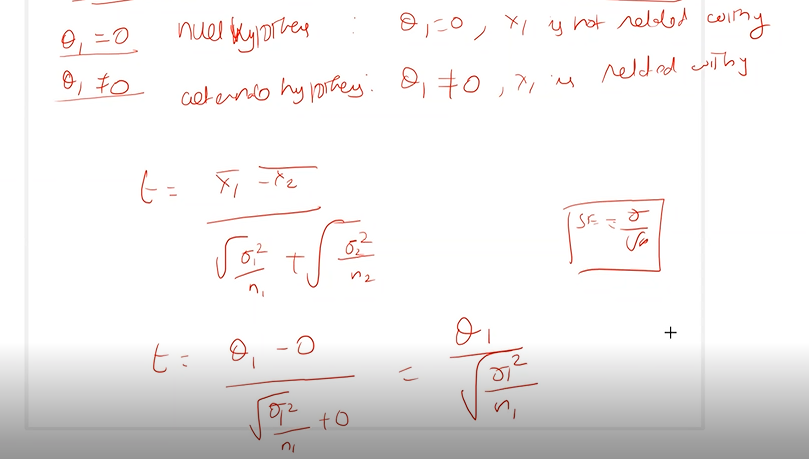 θ₁ = 0 null hypothes : θ₁ = 0, x₁ is not related with y
θ₁ ≠ 0 alternate hypothesis: θ₁ ≠ 0, x₁ is related with y
t = (x̄₁ - x̄₂) / (√(σ₁²/n₁) + √(σ₂²/n₂))
SE = σ/√n
t = (θ₁ - 0) / (√(σ₁²/n₁) + 0) = θ₁ / √(σ₁²/n₁)